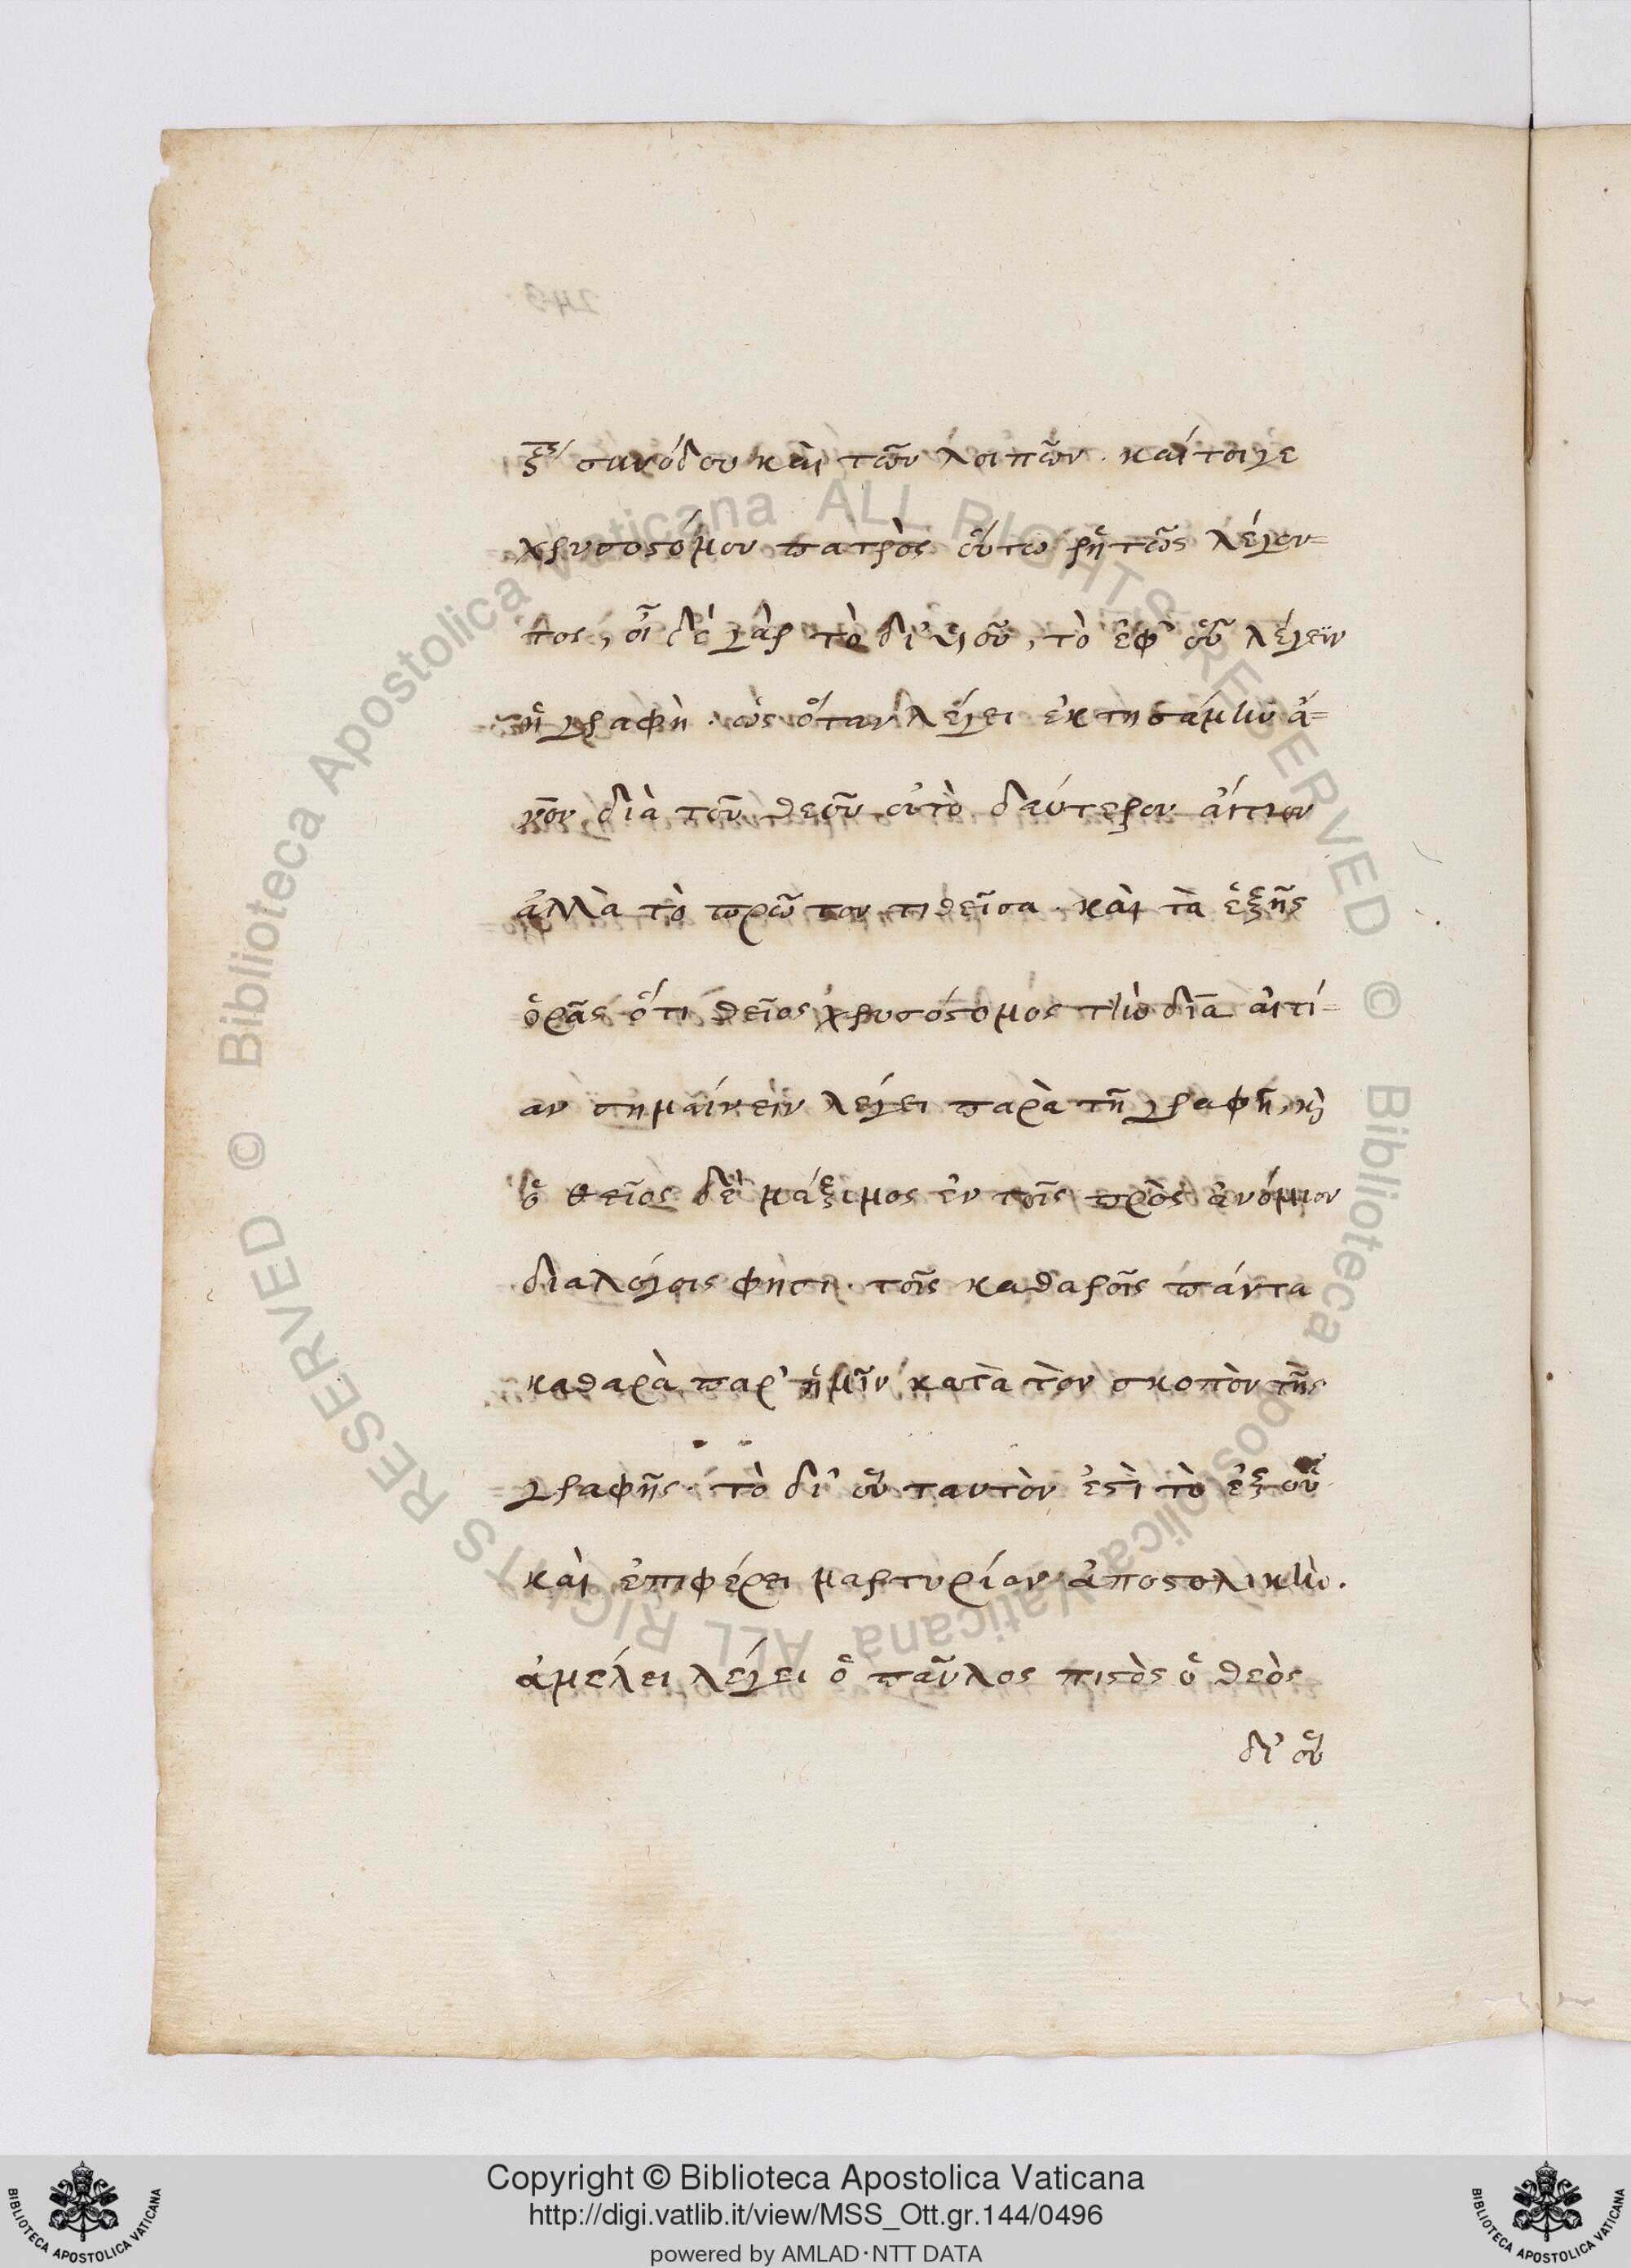 ξʹ συνόδου καὶ τῶν λοιπῶν. καίτοιγε
χρυσοστόμου πατρὸς οὕτω ῥητῶς λέγον=
τος, οἶδε γὰρ τὸ δι' οὗ, τὸ ἐφ' οὗ λέγειν
ἡ γραφὴ. ὡς ὅταν λέγει ἐκτησάμην ἄ=
νον διὰ τοῦ θεοῦ οὐ τὸ δεύτερον αἴτιον
ἀλλὰ τὸ πρῶτον τιθεῖσα. καὶ τὰ ἑξῆς
ὁρᾶς ὅτι θεῖος χρυσόστομος τὴν διὰ αἰτί=
αν σημαίνειν λέγει παρὰ τῇ γραφῇ, καὶ
ὁ θεῖος δὲ μάξιμος ἐν τοῖς πρὸς ἀνόμιον
διαλόγοις φησι. τοῖς καθαροῖς πάντα
καθαρὰ παρ' ἡμῖν κατὰ τὸν σκοπὸν τῆς
γραφῆς. τὸ δι' οὗ ταυτὸν ἐστὶ τὸ ἐξ οὗ
καὶ ἐπιφέρει μαρτυρίαν ἀποστολικὴν.
ἀμέλει λέγει ὁ παῦλος πιστὸς ὁ θεὸς
δι' οὗ
© Biblioteca Apostolica Vaticana ALL RIGHTS RESERVED © Biblioteca Apostolica Vaticana ALL RIGHTS RESERVED
Copyright © Biblioteca Apostolica Vaticana
http://digi.vatlib.it/view/MSS_Ott.gr.144/0496
powered by AMLAD·NTT DATA
BIBLIOTECA APOSTOLICA VATICANA
BIBLIOTECA APOSTOLICA VATICANA